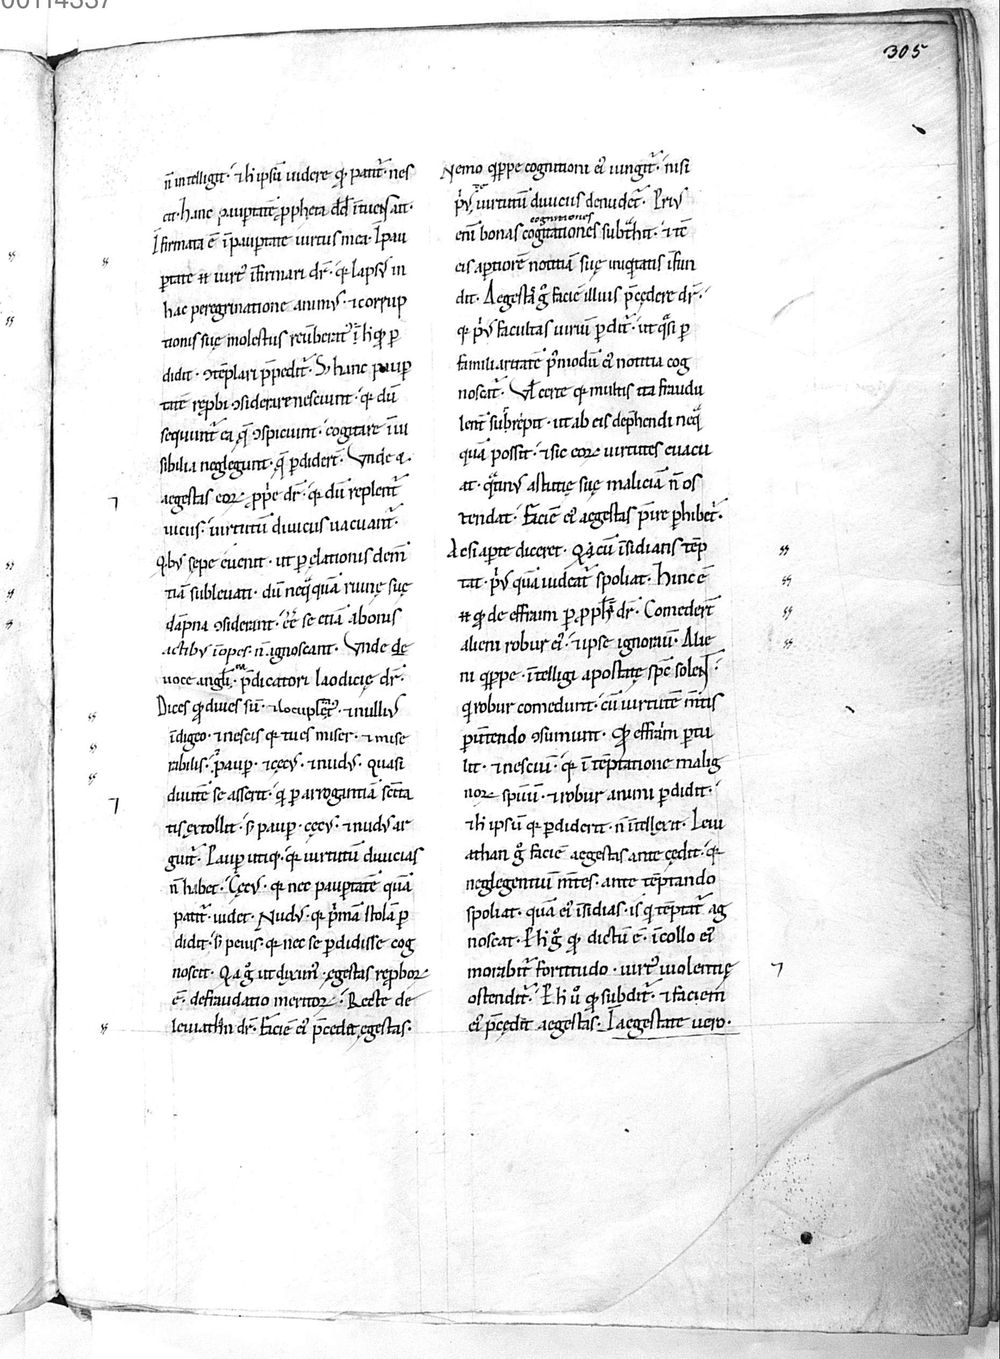 305
n̄ intelligit · ⁊ h̄ ipsū uidere q̨ · patit̄ · nes
cit · hanc paup̄tatē p̄pheta dd̄ ītuens ait ·
Īfirmata ē ī paup̄tate uirtus mea · Īpau
p̄tate
hac peregrinatione animꝰ · ⁊ corrup
tionis suę molestus
didit · ꝯtēplari p̄pedit̄ · hanc paup̄
tatē rep̄bi ꝯsiderare nesciunt · q̨ dū
sequunt̄ ea q̄ ꝯspiciunt · cogitare īui
sibilia neglegunt · q̄ p̄didert̄ · Vnde a
aegestas eoꝝ p̄p̄e dr̄ · q̨ dū replent̄
uicus · uirtutū diuicus uacuant̄ ·
Qbꝰ sępe euenit · ut p̄ elationis dem̄
tiā subleuati · dū neq̄quā ruinę suę
dāpna ꝯsiderant · se etiā abonis
actibꝰ īopes · n̄ ignoscant · Vnde de
uoce angl̄i · p̄dicatori laodicię dr̄ ·
Dices q̨ diues sū · ⁊ locuplet̄ · ⁊ nulliꝰ
īdigeo · ⁊ nescis q̨ tu es miser · ⁊ mise
rabilis · paup̄ · ⁊ cęcꝰ · ⁊ nudꝰ · Quasi
diuitē se asserit · q̄ p̄ arrogantiā sc̄ita
tis extollit · s̄ paup̄ · cęcꝰ · ⁊ nudꝰ ar
guit̄ · Paup̄ utiq̨ · q̨ uirtutū diuicias
n̄ habet · Cęcꝰ · q̨ nec paup̄tatē quā
patit̄ uidet · Nudꝰ · q̨ p̄mā stolā p̄
didit · s̄ peius · q̨ nec se p̄didisse cog
noscit · Q̨a g̊ ut diximꝰ · ęgestas rep̄boꝝ
ē · defraudatio meritoꝝ · Recte de
leuiathn̄ dr̄ · Faciē eiꝰ p̄cedit ęgestas ·
Nemo q̨ppe cognitioni eiꝰ iungit̄ · nisi
p̄ꝰ uirtutū diuicus denudet̄ · Priꝰ
cognitiones
eni̅ bonas cogitationes subt̄hit · ⁊ tē
eis aptiorē notitiā suę iniq̨tatis īfun
dit · Aegestas g̊ faciē illius p̄cędere dr̄ ·
q̨ p̄ꝰ facultas uiriū p̄dit̄ · ut q̄si p̄
familiaritatē p̄modū eiꝰ notitia cog
noscat̄ · Vl̄ certe q̨ multis ita fraudu
lent̄ subrepit · ut ab eis dep̄hendi neq̄
quā possit · ⁊ sic eoꝝ uirtutes euacu
at · q̄tinꝰ astutię suę maliciā n̄ os
tendat · Faciē eiꝰ aegestas p̄ire p̄hibet̄ ·
Ac si ap̄te diceret · Q̨a cū īsidiatis tēp
tat · p̄ꝰ quā uideat̄ spoliat · Hinc ē
q̨ de effraim p̄ p̄ph̄ dr̄ · Comedert̄
alieni robur eiꝰ · ⁊ ipse ignorauit̄ · Alie
ni q̨ppe · ītelligi apostatę spc̄ solent̄ ·
q̄ robur comedunt · cū uirtutē m̄tis
p̄uertendo ꝯsumunt · Q̨ effraim p̄tu
lit · ⁊ nesciuit̄ · q̨ ī tēptatione malig
noꝝ spūū · ⁊ robur animi p̄didit ·
⁊ h̄ ipsū q̨ p̄diderit · n̄ ītellexit · Leui
athan g̊ faciē aegestas ante cędit · q̨
neglegentiū m̄tes · ante tēptando
spoliat · quā eiꝰ īsidias · is q̄ tēptat̄ ag
noscat · P̄ h̄ g̊ q̨ dictū ē · īcollo eiꝰ
morabit̄ fortitudo · uirtꝰ uiolentię
ostendit̄ · P̄ h̄ ů q̨ subdit̄ · ⁊ faciem
eiꝰ p̄cędit aegestas · Iaegestate uero ·